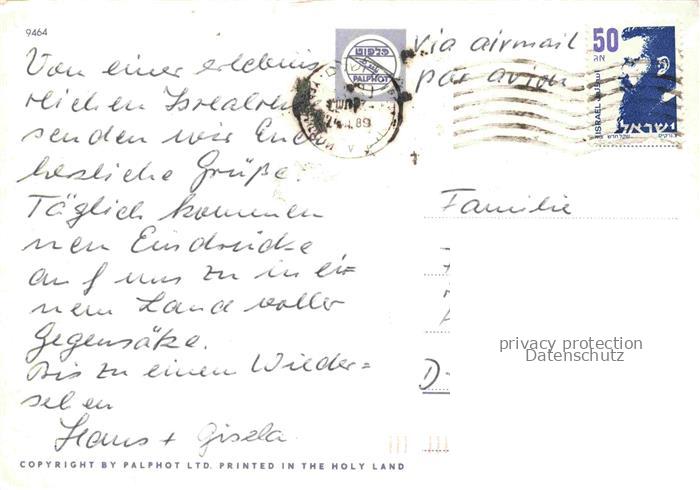 9464
Von einer erlebnis
reichen Israelreise
senden wir Euch
herzliche Grüße.
Täglich kommen
neue Eindrücke
auf uns zu in ei=
nem Land voller
Gegensätze.
Bis zu einem Wieder=
sehen
Hans + Gisela
COPYRIGHT BY PALPHOT LTD. PRINTED IN THE HOLY LAND
פלפוט
PALPHOT
via airmail
par avion
50
אג
ISRAEL
ישראל
Familie
D-
privacy protection
Datenschutz